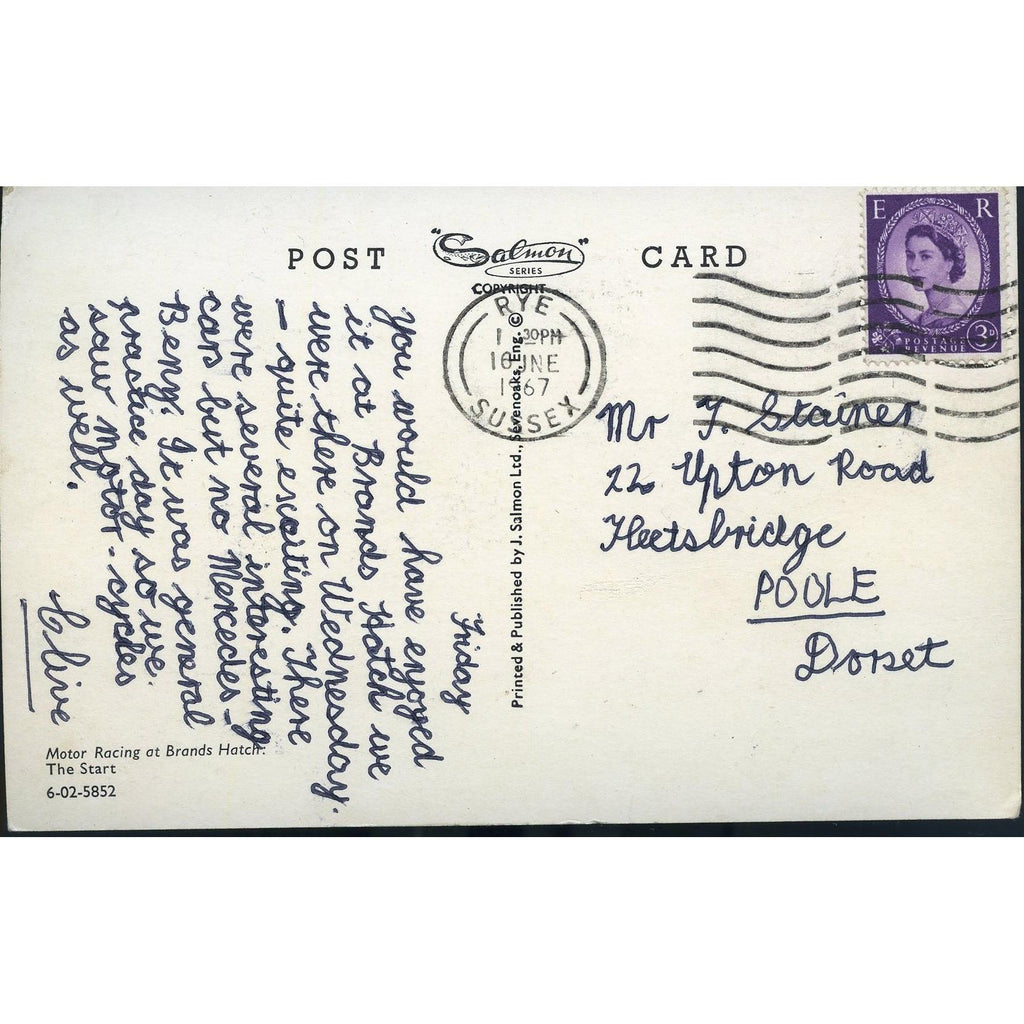 POST "Salmon" CARD
SERIES
COPYRIGHT
E R
POSTAGE
REVENUE
3D
RYE
1 30PM
16 JNE
1967
SUSSEX
Printed & Published by J. Salmon Ltd., Sevenoaks, Eng. ©
Friday
You would have enyoyed
it at Brands Hatch we
were there on Wednesday.
– quite exciting. There
were several interesting
cars but no Mercedes-
Benz. It was general
practice day so we
saw Motor-cycles
as well.
Clive
Mr T. Stainer
22 Upton Road
Fleetsbridge
POOLE
Dorset
Motor Racing at Brands Hatch:
The Start
6-02-5852